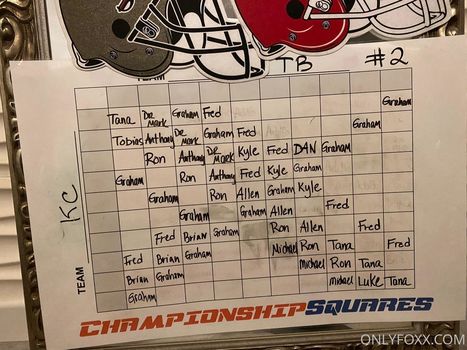 TB #2
TEAM
Graham
Tana Dr. Mark Graham Fred
Graham
Tobias Anthony Dr. Mark Graham Fred
Ron Anthony Dr. Mark Kyle Fred DAN Graham
Graham Ron Anthony Fred Kyle Graham
Graham Ron Allen Graham Kyle
Graham Graham Allen Fred
Fred Brian Graham Ron Allen Fred
Fred Brian Graham Michael Ron Tana Fred
Brian Graham Michael Ron Tana
Graham Michael Luke Tana
TEAM KC
CHAMPIONSHIP SQUARES
ONLYFOXX.COM